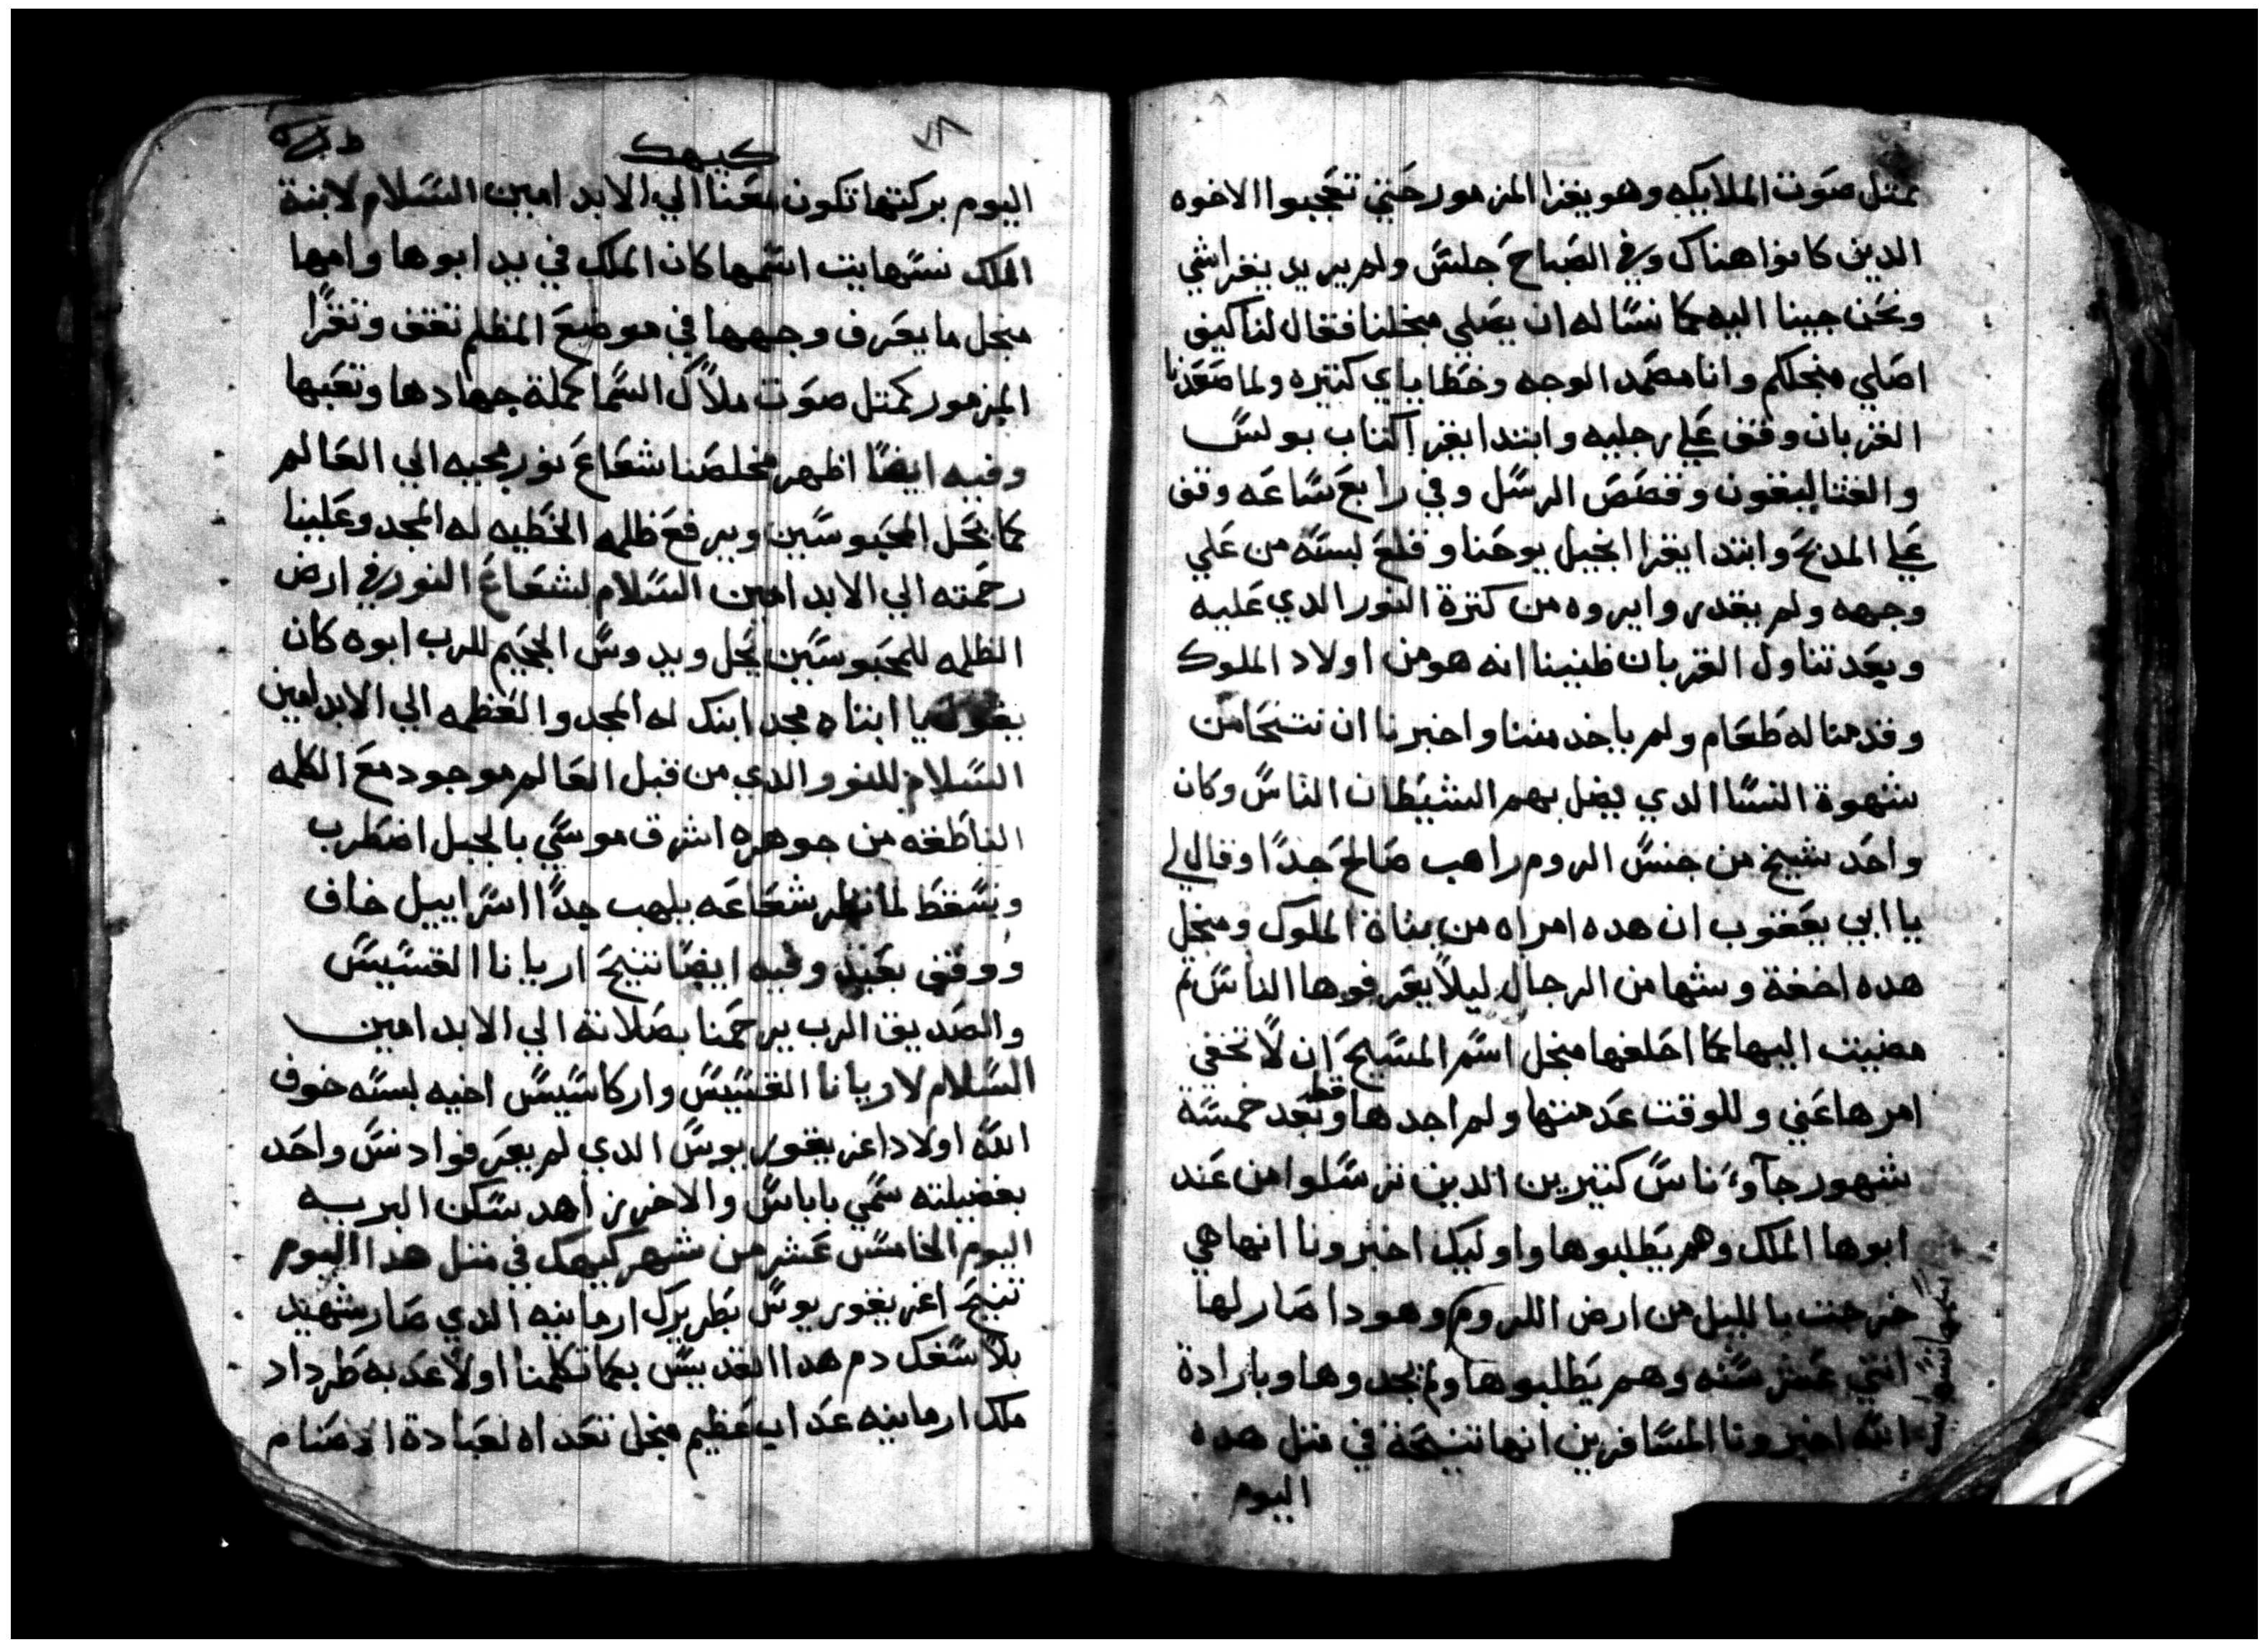 بمتل صوت الملايكه وهو يقرا المزمور حتي تعجبوا الاخوه
الدين كانوا هناك وفي الصباح جلس ولم يريد يقرا شي
ونحن جينا اليه كما نساله ان يصلي منجلنا فقال لنا كيف
اصلي منجلكم وانا مضمد الوجه وخطاياي كتيره ولما صعدنا
القربان وقف علي رجليه وابتدا يقرا كتاب بولس
والقتاليقون وقصص الرسل وفي رابع ساعه وقف
علي المدبح وابتدا يقرا انجيل يوحنا وقلع لبسه من علي
وجهه ولم يقدروا يروه من كترة النور الدي عليه
وبعد تناول القربان ظنينا انه هو من اولاد الملوك
وقدمنا له طعام ولم ياخد مننا واخبرنا ان نتنحا من
شهوة النسا الدي يضل بهم الشيطان الناس وكان
واحد شيخ من جنس الروم راهب صالح جدا وقال لي
يا ابي يعقوب ان هده امراه من بناة الملوك ومنجل
هده اخفة وشها من الرجال ليلا يعرفوها الناس تم
مضيت اليها كما احلفها منجل اسم المسيح ان لا تخفي
امرها عني وللوقت عدمتها ولم اجدها قط وبعد خمسة
شهور جاوا ناس كتيرين الدين نرسلوا من عند
ابوها الملك وهم يطلبوها واوليك اخبرونا انها هي
خرجت بالليل من ارض الروم وهودا صار لها
اتني عشر سنه وهم يطلبوها ولم يجدوها وبارادة
الله اخبرونا المسافرين انها تنيحة في متل هده
اليوم
٧٨
كيهك
اليوم بركتها تكون معنا الي الابد امين السلام لابنة
الملك نسهايت اسمها كان الملك في يد ابوها وامها
منجل ما يعرف وجهها في موضع المظلم تقف وتقرا
المزمور كمتل صوت ملاك السما كملة جهادها وتعبها
وفيه ايضا اظهر مخلصنا شعاع نور مجيه الي العالم
كما يحل المحبوسين ويرفع ظلمه الخطيه له المجد وعلينا
رحمته الي الابد امين السلام لشعاع النور في ارض
الظلمه للمحبوسين يحل ويدوس الجحيم للرب ابوه كان
يقول يا ابتاه مجد ابنك له المجد والعظمه الي الابد امين
السلام للنور الدي من قبل العالم موجود مع الكلمه
الناطقه من جوهره اشرق موسي بالجبل اضطرب
وسقط لما نظر شعاعه يلهب جدا اسراييل خاف
ووقف بعيد وفيه ايضا تنيح اريانا القسيس
والصديق الرب يرحمنا بصلاته الي الابد امين
السلام لاريانا القسيس واركاسيس اخيه لبسه خوف
الله اولاد اغريغوريوس الدي لم يعرفوا دنس واحد
بفضيلته سمي باباس والاخر زاهد سكن البريه
اليوم الخامس عشر من شهر كيهك في متل هدا اليوم
تنيح اغريغوريوس بطريرك ارمانيه الدي صار شهيد
بلا سفك دم هدا القديس بكما تكلمنا اولا عدبه طرداد
ملك ارمانيه عداب عظيم منجل تعداه لعبادة الاصنام